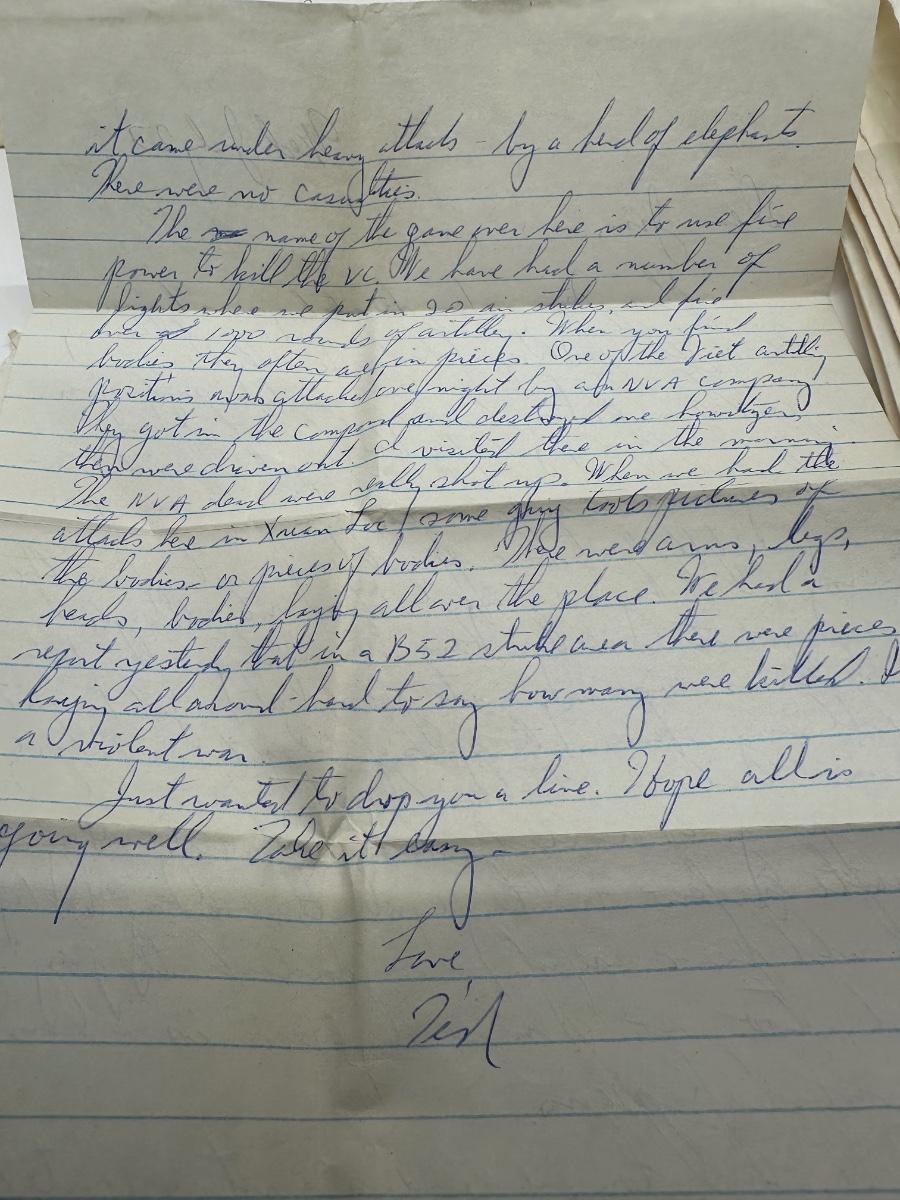 it came under heavy attack - by a herd of elephants.
There were no casualties.
The name of the game over here is to use fire
power to kill the VC. We have had a number of
fights where we put in 20 air strikes, and fire
over 1000 rounds of artillery. When you find
bodies they often are in pieces. One of the Viet artillery
positions was attacked over night by an NVA company
They got in the compound and destroyed one howitzer,
then were driven out. I visited there in the morning.
The NVA dead were really shot up. When we had the
attacks here in Xuan Loc, some guy took pictures of
the bodies - or pieces of bodies. There were arms, legs,
heads, bodies, laying all over the place. We had a
report yesterday that in a B52 strike area there were pieces
laying all around - hard to say how many were killed.
a violent war.
Just wanted to drop you a line. Hope all is
going well. Take it easy.
Love,
Ted